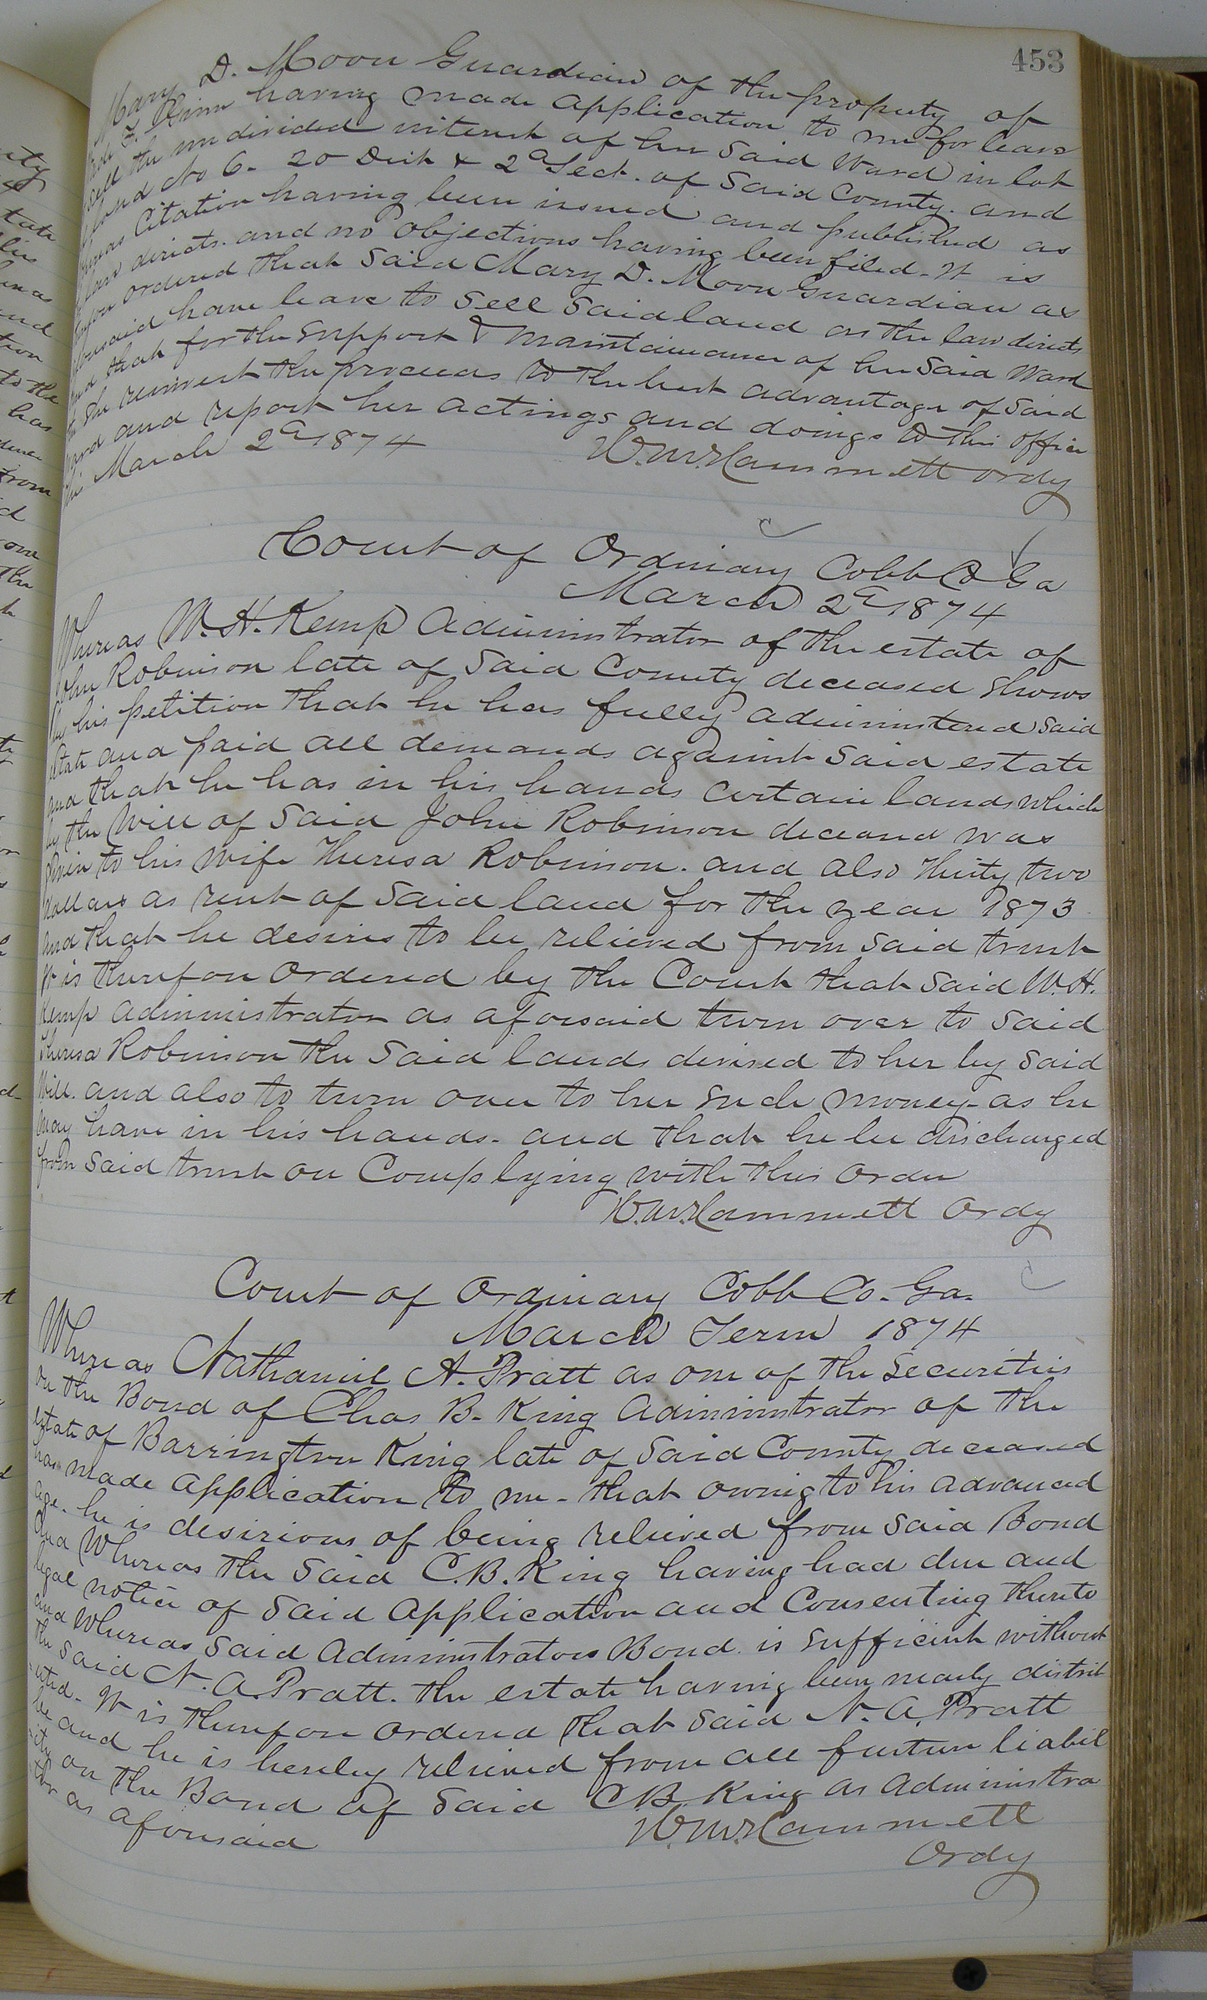 453
Mary D. Moon Guardian of the property of
F. having made application to me for leave
sell the undivided interest of her said Ward in lot
No 6. 20 Dist & 2d Sect. of Said County. and
Citation having been issued and published as
law directs. and no objections having been filed. It is
ordered that Said Mary D. Moon Guardian as
aforesaid have leave to sell said land as the law directs
and that for the support & maintainance of her said Ward
she reinvest the proceeds to the best advantage of said
Ward and report her actings and doings to this office
this March 2d 1874 W. M. Hammett Ordy
Court of Ordinary Cobb Co Ga
March 2d 1874
Whereas W. H. Kemp Administrator of the estate of
John Robinson late of Said County deceased shows
by his petition that he has fully administered said
estate and paid all demands against said estate
and that he has in his hands certain lands which
by the Will of Said John Robinson deceased was
given to his wife Theresa Robinson. and also thirty two
dollars as rent of said land for the year 1873
and that he desires to be relieved from said trust
It is therefore ordered by the Court that said W. H.
Kemp administrator as aforesaid turn over to said
Theresa Robinson the said lands devised to her by said
Will. and also to turn over to her such money as he
may have in his hands. and that he be discharged
from said trust on Complying with this order
W. M. Hammett Ordy
Court of Ordinary Cobb Co. Ga.
March Term 1874
Whereas Nathaniel A. Pratt as one of the securities
on the Bond of Chas B. King Administrator of the
estate of Barrington King late of said County deceased
has made application to me. that owing to his advanced
age. he is desirious of being relieved from said Bond
And Whereas the said C. B. King having had due and
legal notice of said application and Consenting thereto
and Whereas said Administrators Bond is sufficient without
the said N. A. Pratt. the estate having been nearly distrib
uted. It is therefore ordered that said N. A. Pratt
be and he is hereby relieved from all further liabil
ity on the Bond of said C B King as Administra
tor as aforesaid W. M. Hammett
Ordy